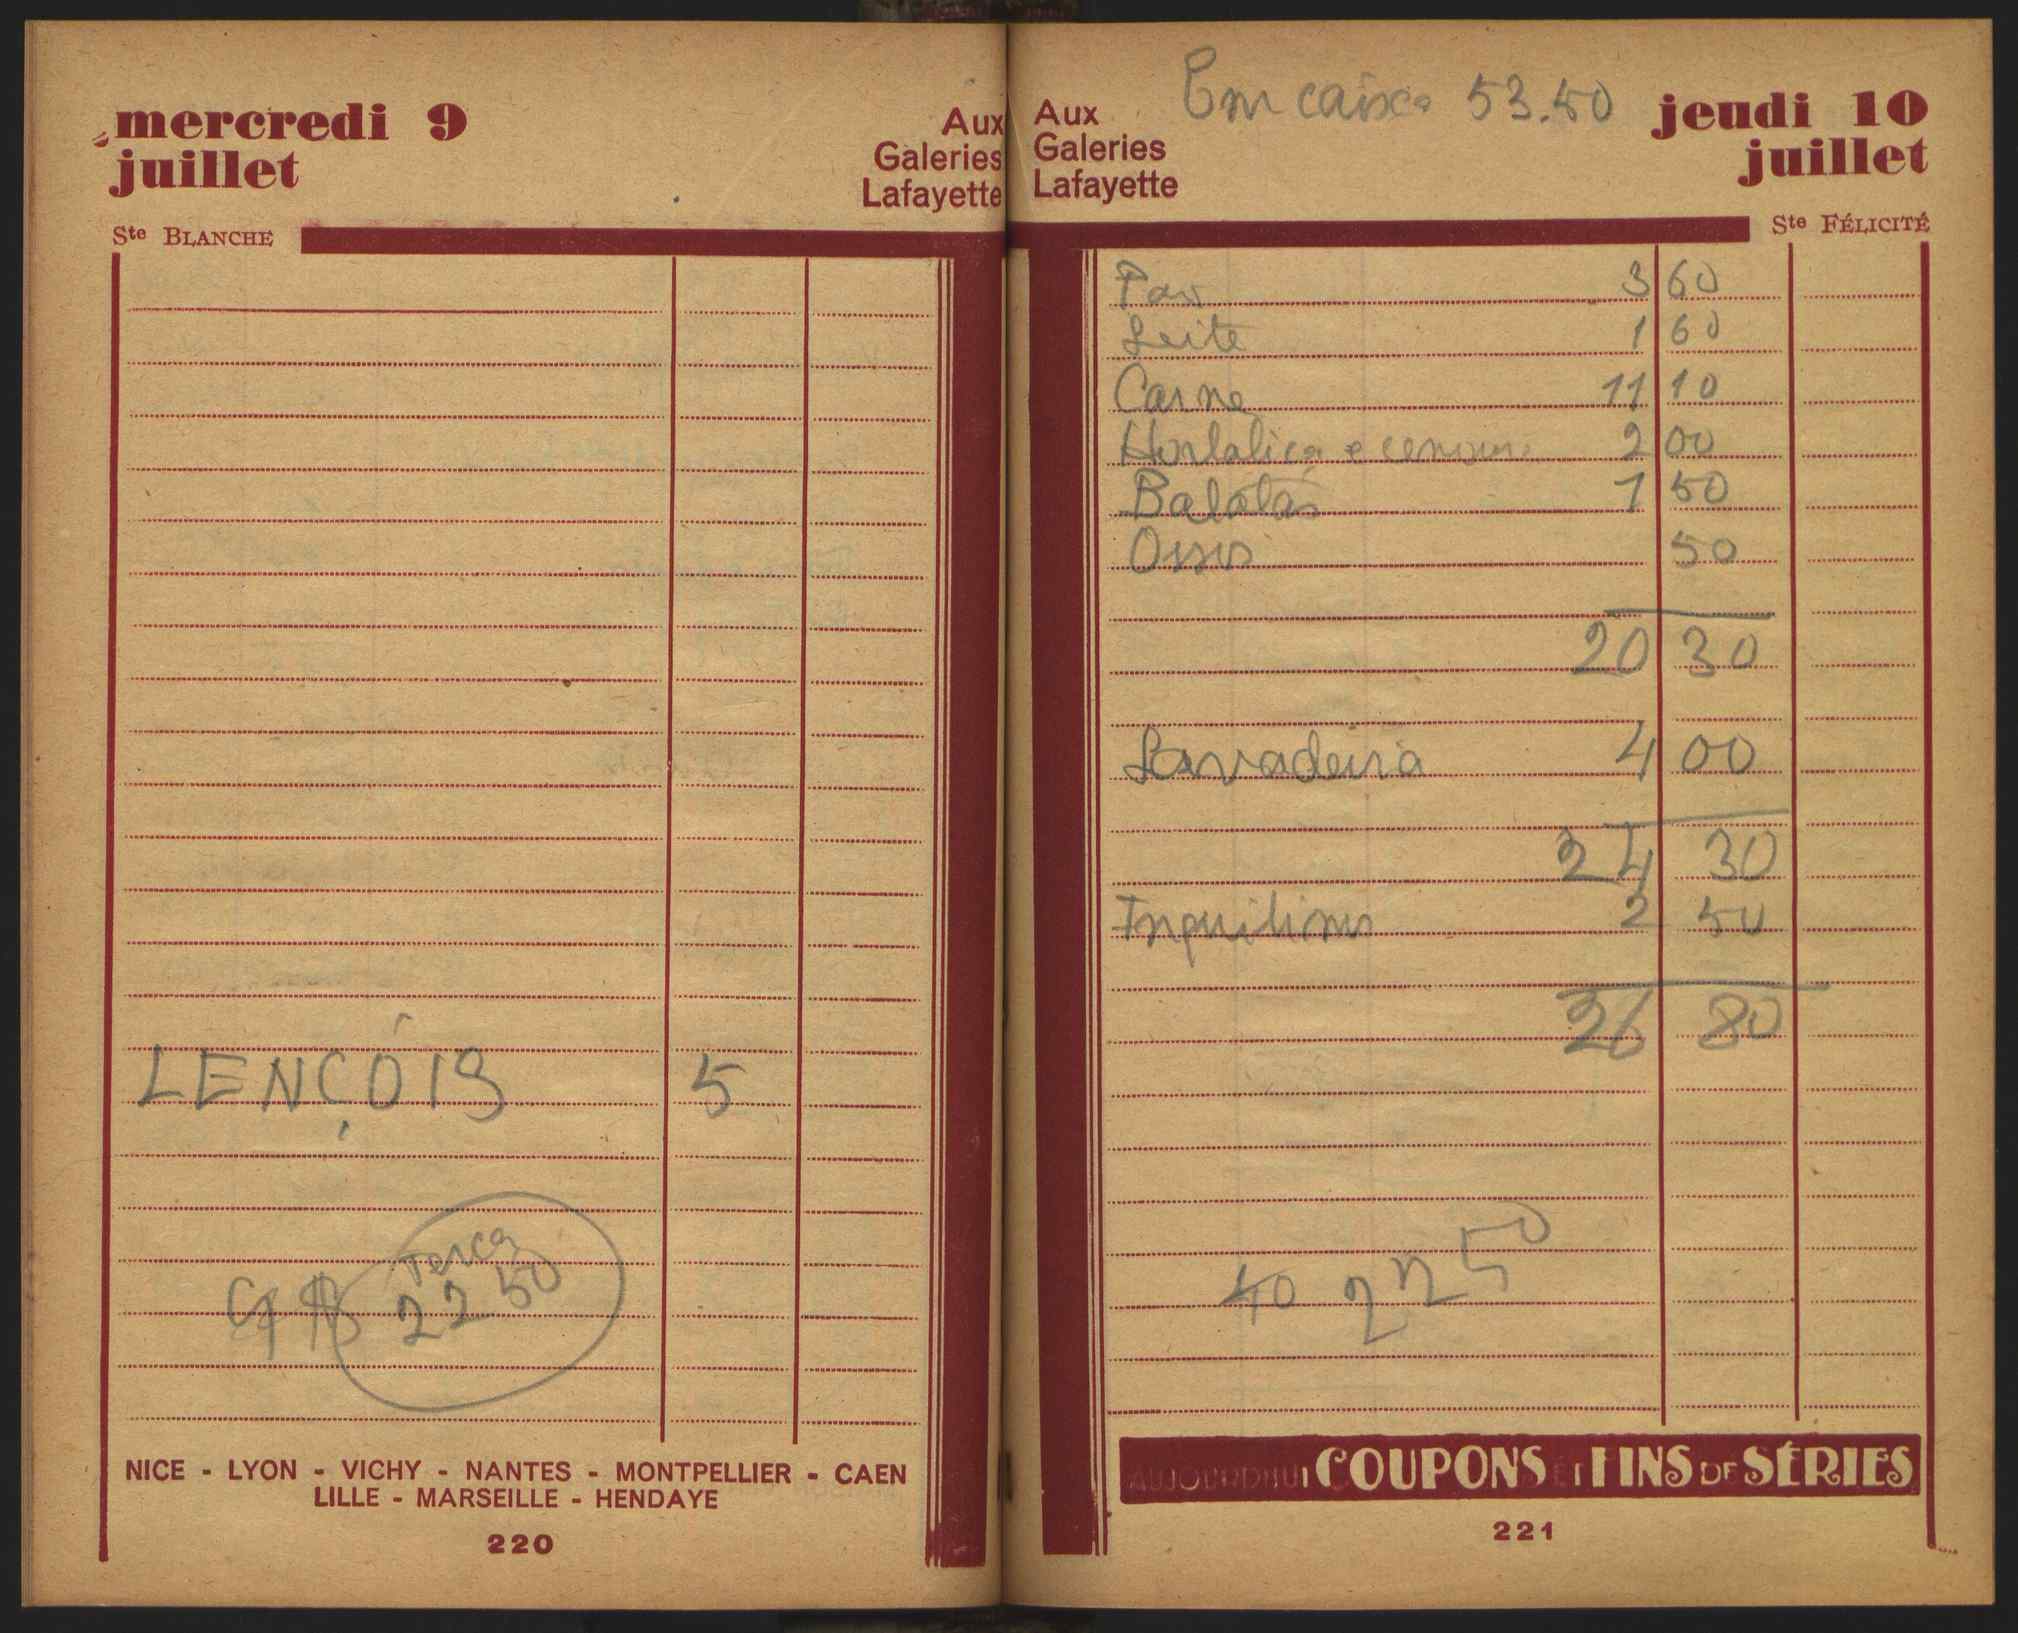 mercredi 9
juillet
Aux
Galeries
Lafayette
Ste BLANCHE
LENÇÓIS 5
Terça
22 50
NICE - LYON - VICHY - NANTES - MONTPELLIER - CAEN
LILLE - MARSEILLE - HENDAYE
220
Em caixa 53.50
Aux
Galeries
Lafayette
jeudi 10
juillet
Ste FÉLICITÉ
Pão 3 60
Leite 1 60
Carne 11 10
Hortaliça e cenoura 2 00
Batatas 1 50
Ossos 50
20 30
Lavadeira 4 00
24 30
Inquilino 2 50
26 80
40 22 50
AUJOURD'HUI COUPONS ET FINS DE SÉRIES
221